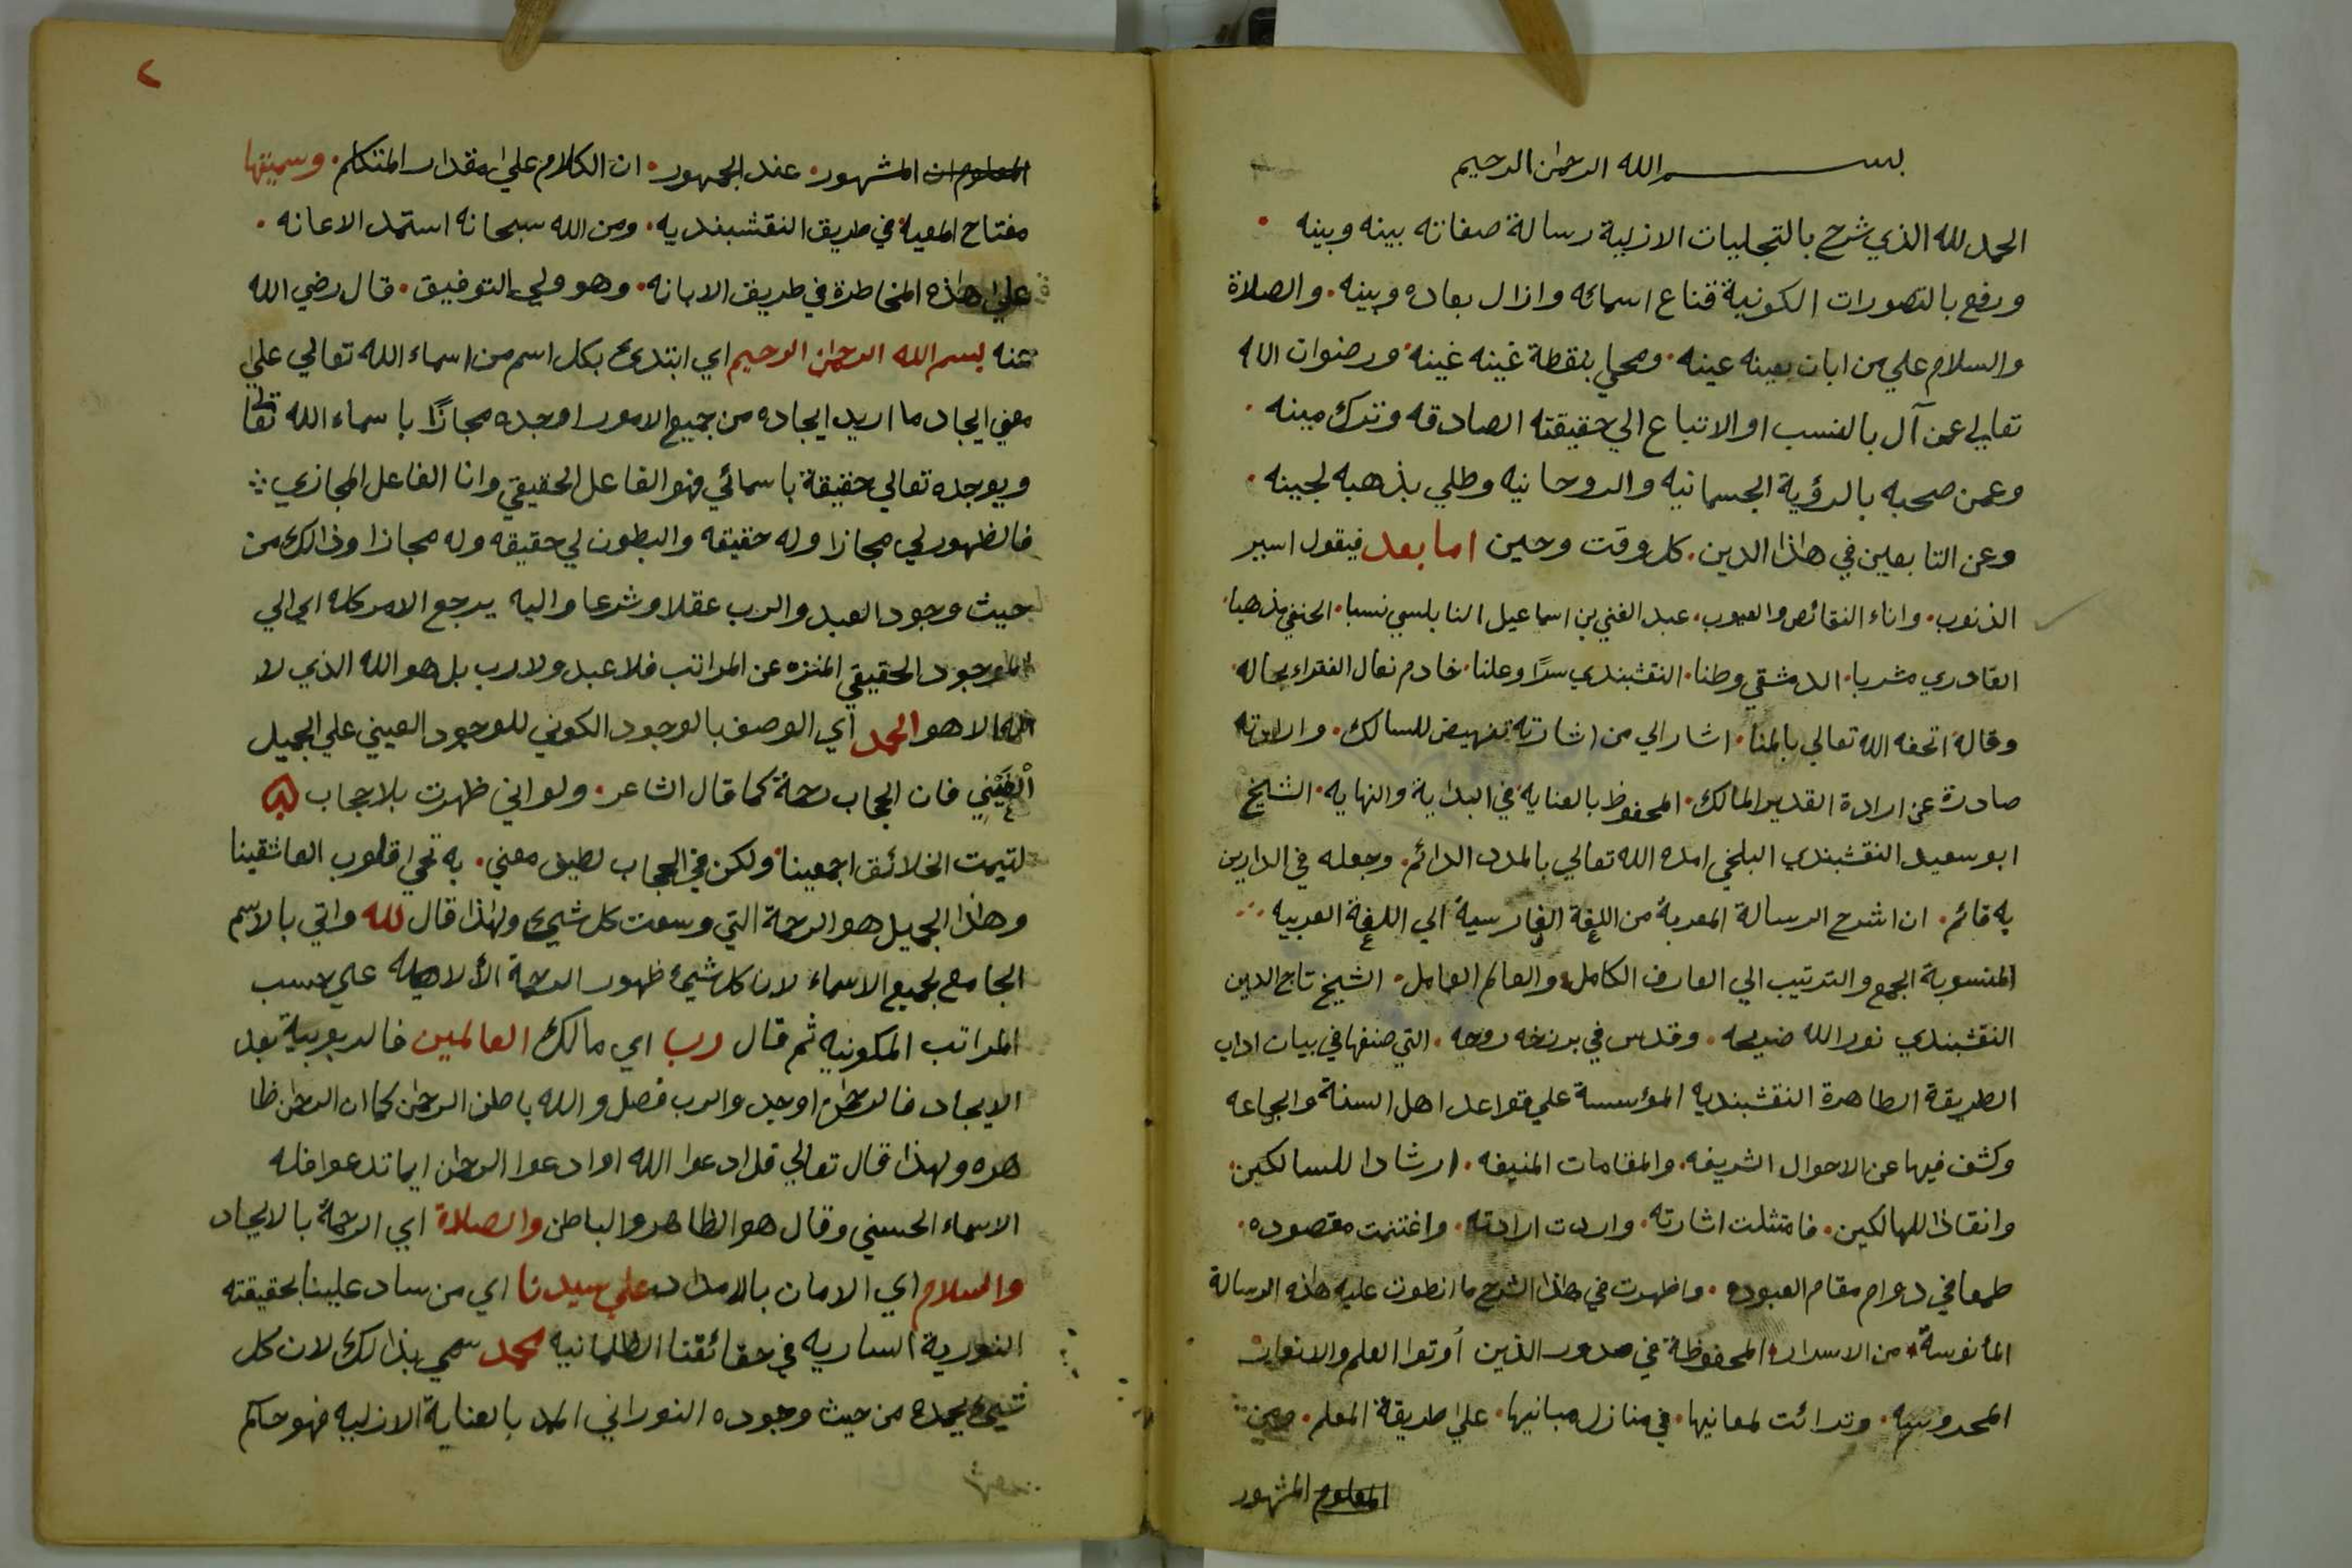 بسم الله الرحمن الرحيم
الحمد لله الذي شرح بالتجليات الازلية رسالة صفاته بينه وبينه
ورفع بالتصورات الكونية قناع اسمائه وازال بعاده وبينه والصلاة
والسلام علي من ابان بعينه عينه ومحي بنقطة غينه غينه ورضوان الله
تعالي عمن آل بالنسب او الاتباع الي حقيقته الصادقه وترك مينه
وعمن صحبه بالرؤية الجسمانيه والروحانيه وطلي بذهبه لجينه
وعن التابعين في هاذا الدين كل وقت وحين اما بعد فيقول اسير
الذنوب واناء النقائص والعيوب عبد الغني بن اسماعيل النابلسي نسبا الحنفي مذهبا
القادري مشربا الدمشقي وطنا النقشبندي سرًا وعلنا خادم نعال الفقراء بحاله
وقاله اتحفه الله تعالي بالمنا اشار الي من اشارته تفهيض للسالك وارادته
صادرة عن ارادة القدير المالك المحفوظ بالعنايه في البداية والنهايه الشيخ
ابو سعيد النقشبندي البلخي امده الله تعالي بالمدد الدائم وجعله في الدارين
به قائم ان اشرح الرسالة المعربة من اللغة الفارسية الي اللغة العربيه
المنسوبة الجمع والترتيب الي العارف الكامل والعالم العامل الشيخ تاج الدين
النقشبندي نور الله ضريحه وقدس في برزخه روحه التي صنفها في بيان اداب
الطريقة الطاهرة النقشبنديه المؤسسة علي قواعد اهل السنة والجماعه
وكشف فيها عن الاحوال الشريفه والمقامات المنيفه ارشادا للسالكين
وانقاذا للهالكين فامتثلت اشارته واردت ارادته واغتنمت مقصوده
طمعا في دوام مقام العبوده واظهرت في هاذا الشرح ما انطوت عليه هاذه الرسالة
المأنوسة من الاسرار المحفوظة في صدور الذين أوتوا العلم والانوار
المحروسه وترائت لمعانيها في منازل مبانيها علي طريقة المعلم
المعلوم المشهور
٢
المعلوم ان المشهور عند الجمهور ان الكلام علي مقدار المتكلم وسميتها
مفتاح المعية في طريق النقشبنديه ومن الله سبحانه استمد الاعانه
علي هذه المخاطرة في طريق الابانه وهو ولي التوفيق قال رضي الله
عنه بسم الله الرحمن الرحيم اي ابتدئ بكل اسم من اسماء الله تعالي علي
معني ايجاد ما اريد ايجاده من جميع الامور اوجده مجازًا باسماء الله تعالي
ويوجده تعالي حقيقة باسمائي فهو الفاعل الحقيقي وانا الفاعل المجازي
فالظهور لي مجازا وله حقيقه والبطون لي حقيقه وله مجازا وذالك من
حيث وجود العبد والرب عقلا وشرعا واليه يرجع الامر كله اي الي
الموجود الحقيقي المنزه عن المراتب فلا عبد ولا رب بل هو الله الذي لا
اله الا هو الحمد اي الوصف بالوجود الكوني للوجود العيني علي الجميل
الغيني فان الحجاب رحمة كما قال الشاعر ولو اني ظهرت بلا حجاب
لتيمت الخلائق اجمعينا ولكن في الحجاب لطيف معني به تحيى قلوب العاشقينا
وهاذا الجميل هو الرحمة التي وسعت كل شيئ ولهذا قال لله واتي بالاسم
الجامع لجميع الاسماء لان كل شيئ ظهور الرحمة الألاهيه علي حسب
المراتب المكونيه ثم قال رب اي مالك العالمين فالربوبية بعد
الايجاد فالرحمن اوجد والرب فصل والله باطن الرحمن كما ان الرحمن ظا
هره ولهذا قال تعالي قل ادعوا الله او ادعوا الرحمن ايما تدعوا فله
الاسماء الحسني وقال هو الظاهر والباطن والصلاة اي الرحمة بالايجاد
والسلام اي الامان بالامداد علي سيدنا اي من ساد علينا بحقيقته
النورية الساريه في حقائقنا الظلمانيه محمد سمي بذالك لان كل
شيئ يحمده من حيث وجوده النوراني الممد بالعناية الازليه فهو حاكم